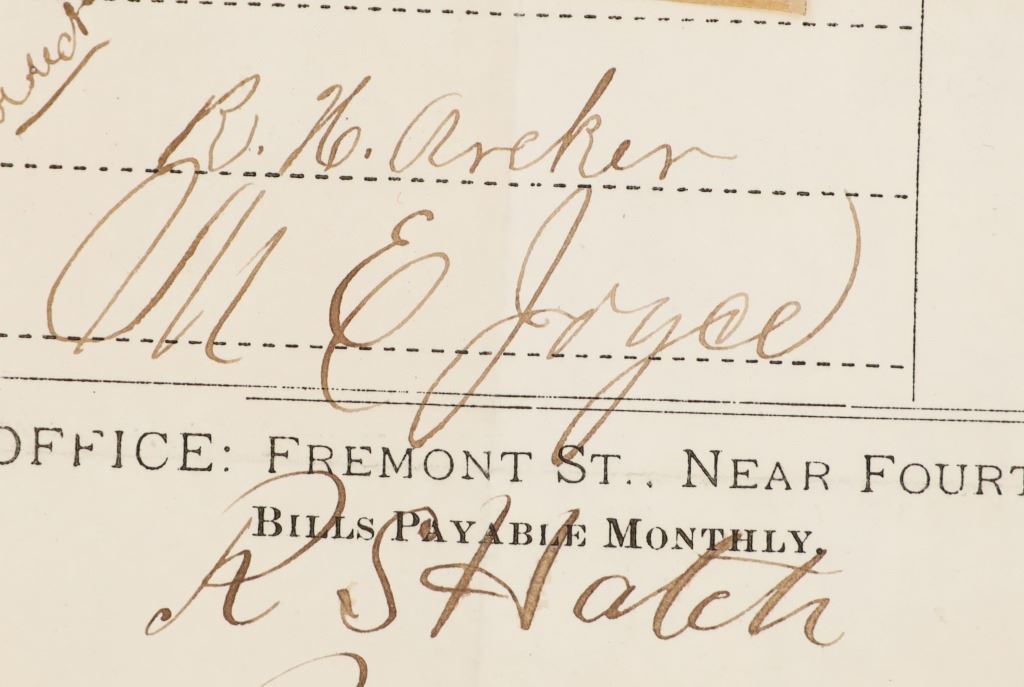 R. H. Archer
M E Joyce
OFFICE: FREMONT ST., NEAR FOURT
BILLS PAYABLE MONTHLY.
R S Hatch